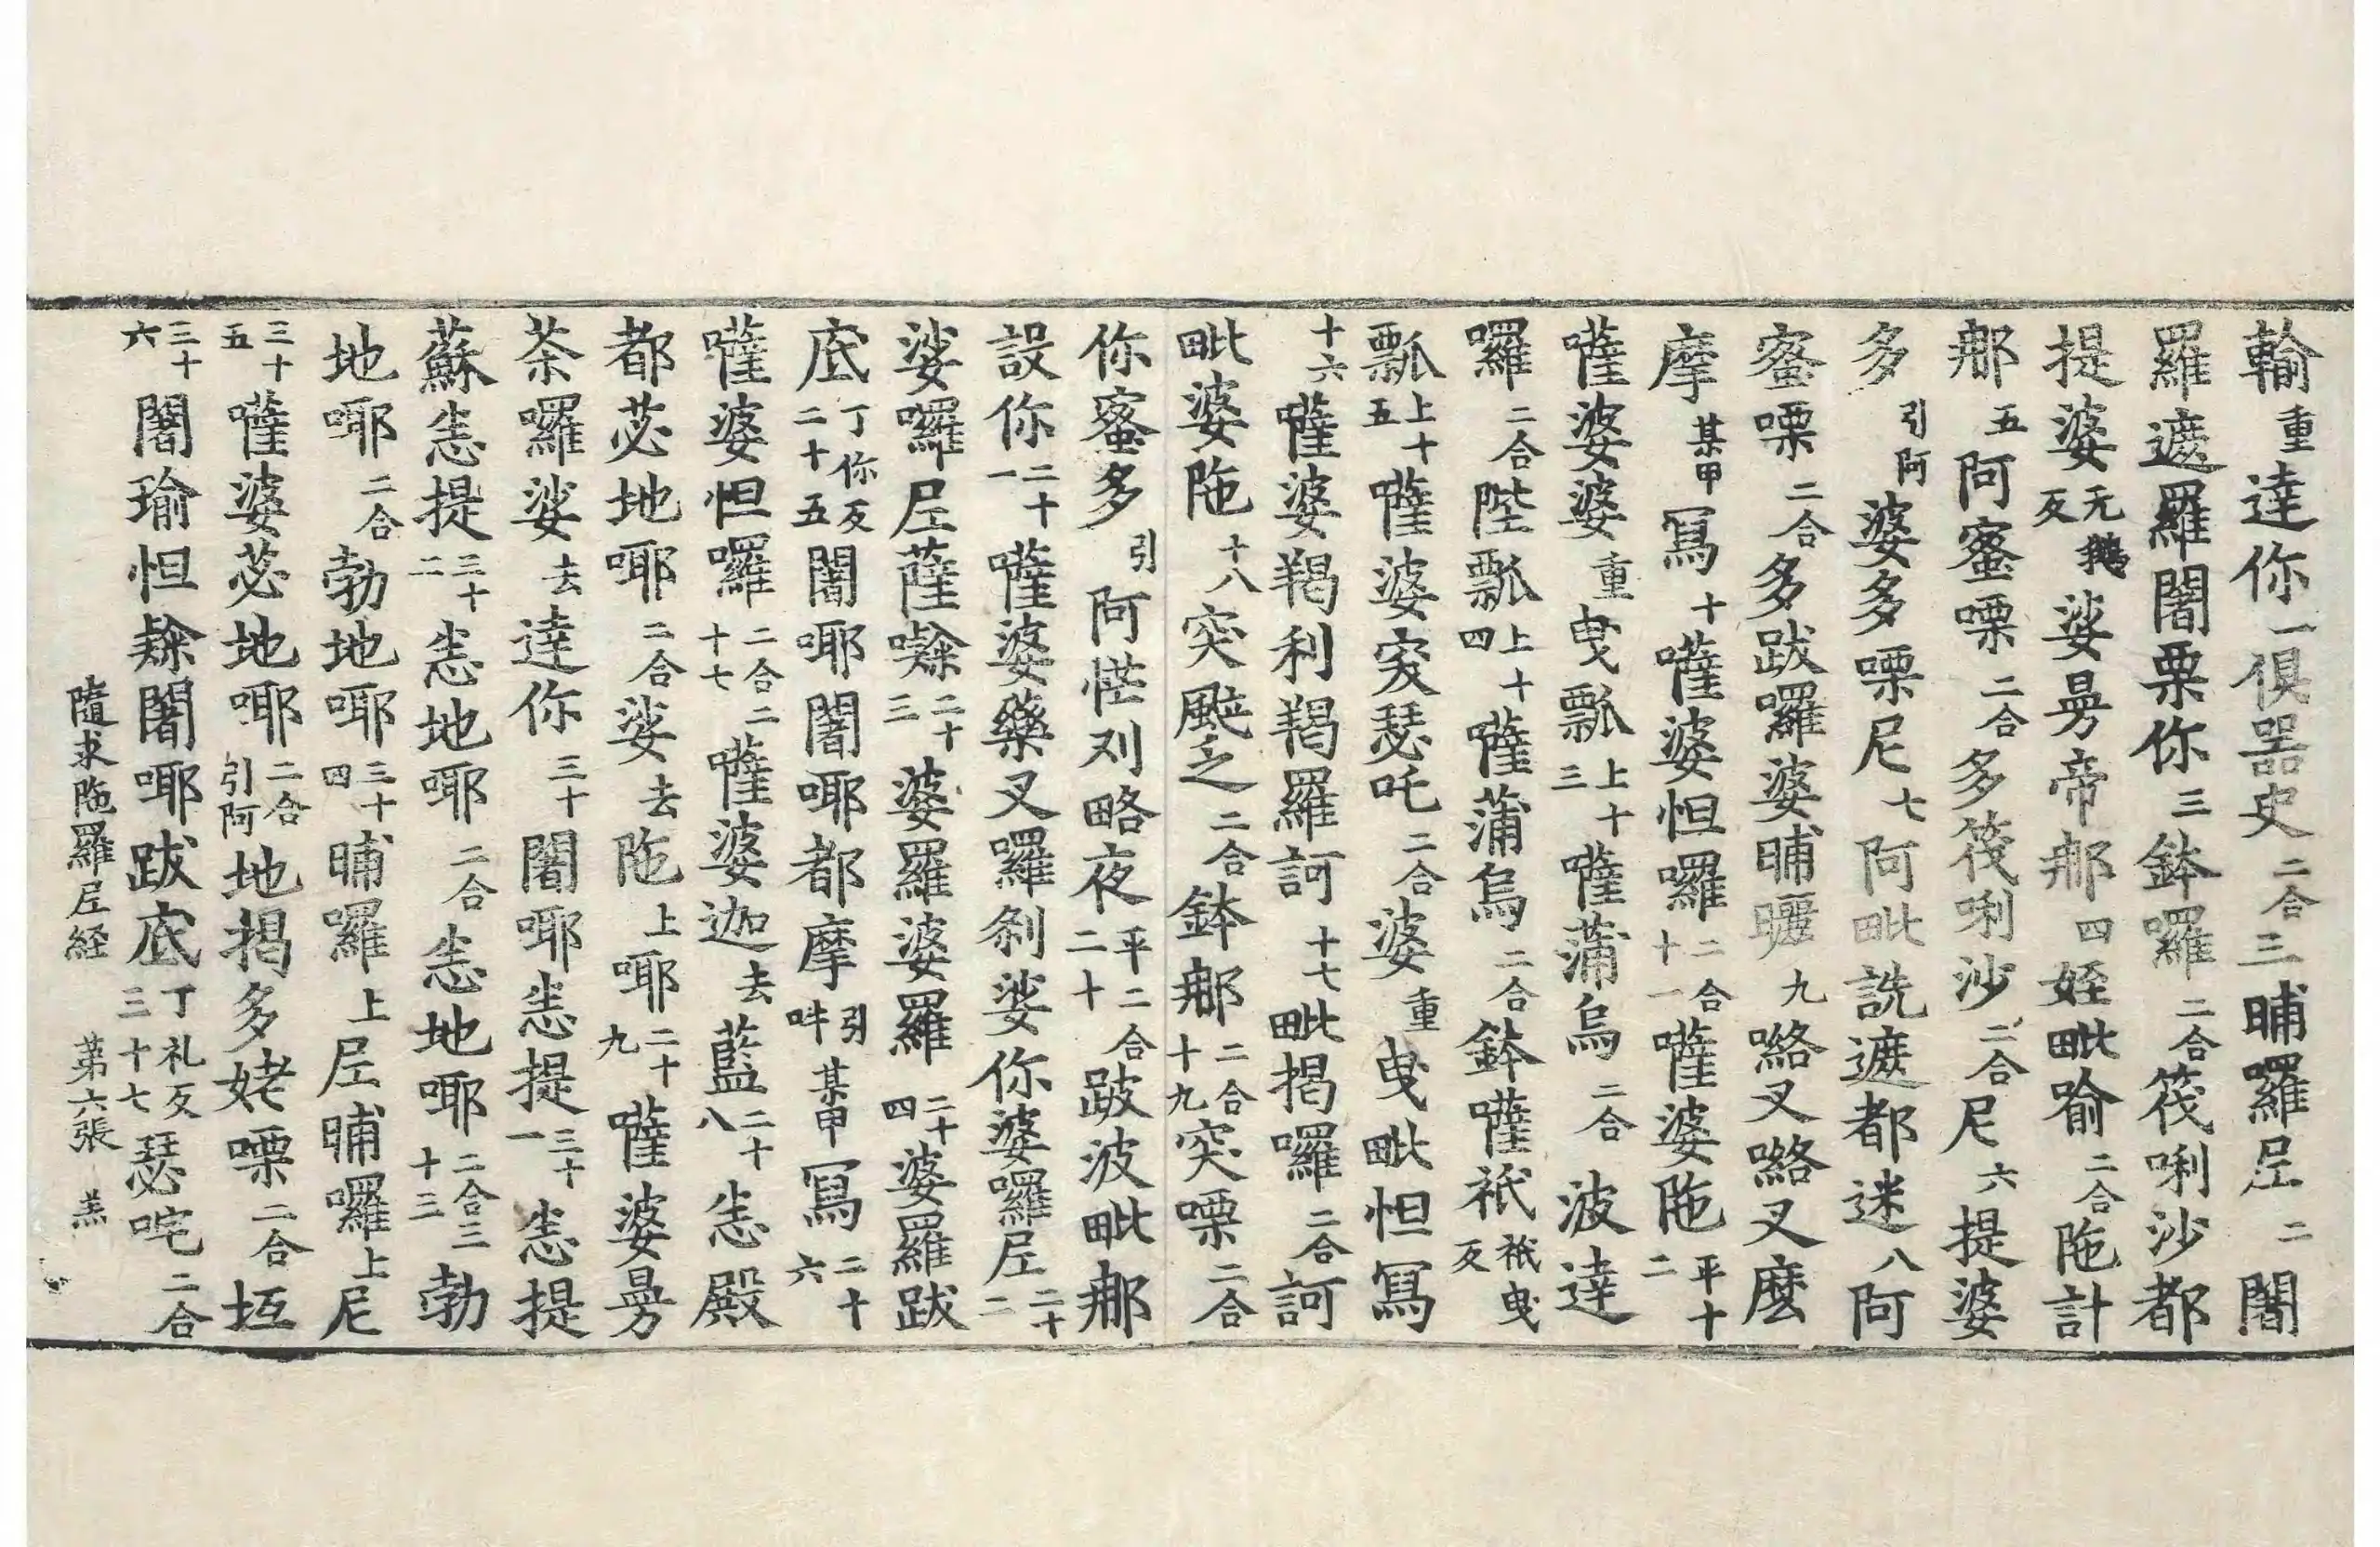 輸重達你一俱噐史二合三晡羅𡱝二闍
羅遮羅闍栗你三鉢囉二合筏唎沙都
提婆无鵝反娑曷帝𨚗四姪毗喻二合陁計
𨚗五阿蜜㗚二合多筏唎沙二合尼六提婆
多引阿婆多㗚尼七阿毗詵遮都迷八阿
蜜㗚二合多跋囉婆晡曬九㗉叉㗉叉麼
摩某甲寫十薩婆怛囉二合十一薩婆陁平十二
薩婆婆重曳瓢上十三薩蒲烏二合波達
囉二合陛瓢上十四薩蒲烏二合鉢薩祇祇曳反
瓢上十五薩婆㝌瑟吒二合婆重曳毗怛寫
十六薩婆羯利羯羅訶十七毗揭囉二合訶
毗婆陁十八突颰乏二合鉢𨚗二合十九突㗚二合
你蜜多引阿恾刈略夜平二合二十跛波毗𨚗
設你二十一薩婆藥叉囉剎娑你婆囉𡱝二十二
娑囉𡱝薩㘓二十三婆羅婆羅二十四婆羅跋
底丁你反二十五闍耶闍耶都摩引吽某甲寫二十六
薩婆怛囉二合二十七薩婆迦去藍二十八悉殿
都苾地耶二合娑去陁上耶二十九薩婆曷
荼囉娑去達你三十闍耶悉提三十一悉提
蘇悉提三十二悉地耶二合悉地耶二合三十三勃
地耶二合勃地耶三十四晡羅上𡱝晡囉上尼
三十五薩婆苾地耶二合引阿地揭多姥㗚二合㧌
三十六闍瑜怛㘓闍耶跋底丁礼反三十七瑟咤二合
隨求陁羅𡱝経　第六張　羔